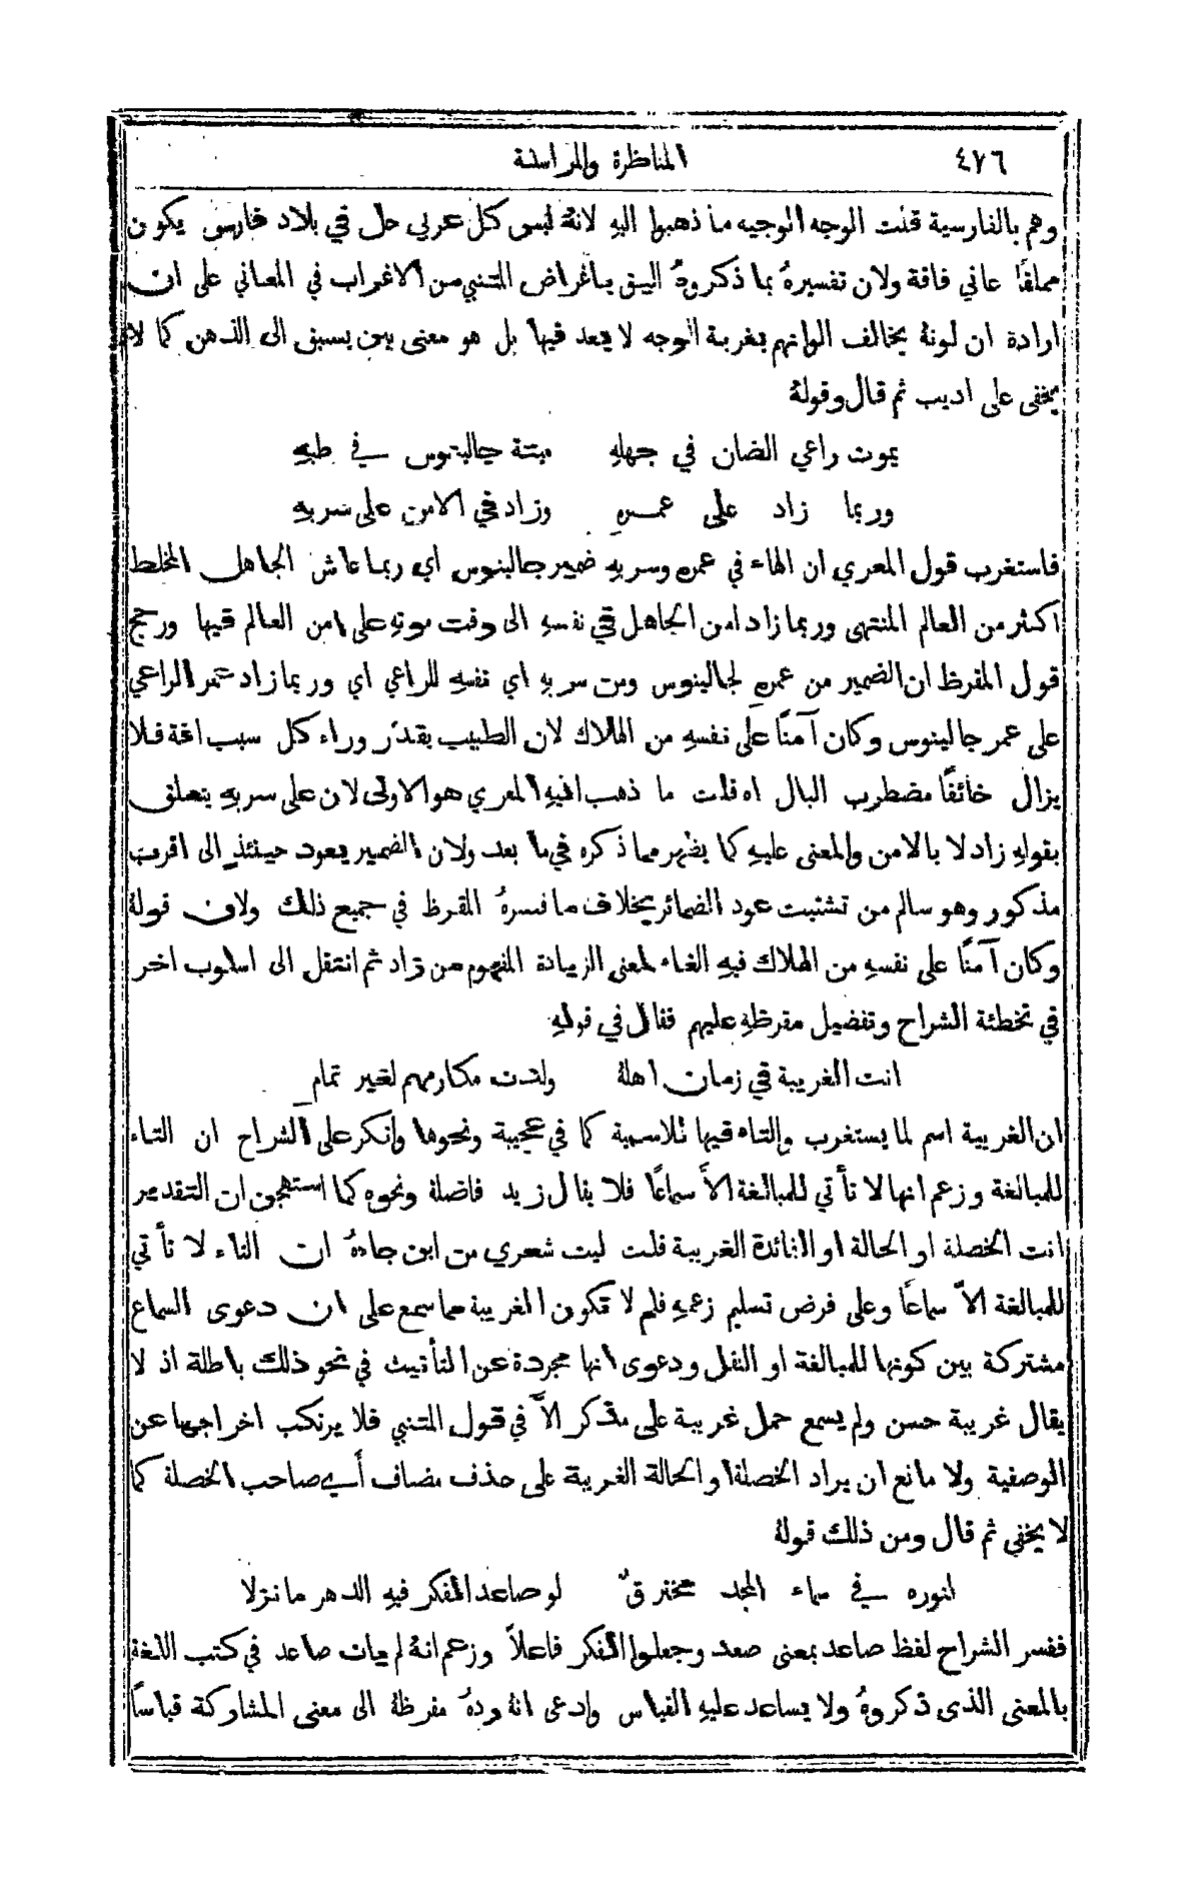 ٤٧٦ المناظرة والمراسلة
وهم بالفارسية قلت الوجه الوجيه ما ذهبوا اليهِ لانهُ ليس كل عربي حل في بلاد فارس يكون
مملقًا عاني فاقة ولان تفسيرهُ بما ذكروهُ اليق باغراض المتنبي من الاغراب في المعاني على ان
ارادة ان لونهُ يخالف الوانهم بغربة الوجه لا يبعد فيها بل هو معنى بين يسبق الى الذهن كما لا
يخفى على اديب ثم قال وقولهُ
يموت راعي الضان في جهلهِ ميتة جالينوس في طبهِ
وربما زاد على عمرهِ وزاد في الامن على سربهِ
فاستغرب قول المعري ان الهاء في عمره وسربهِ ضمير جالينوس اي ربما عاش الجاهل المخلط
اكثر من العالم المنتهي وربما زاد امن الجاهل في نفسهِ الى وقت موتهِ على امن العالم فيها ورجح
قول المقرظ ان الضمير من عمرهِ لجالينوس ومن سربهِ اي نفسهِ للراعي اي وربما زاد عمر الراعي
على عمر جالينوس وكان آمنًا على نفسهِ من الهلاك لان الطبيب يقدر وراء كل سبب افة فلا
يزال خائفًا مضطرب البال اه قلت ما ذهب اليهِ المعري هو الاولى لان على سربهِ يتعلق
بقولهِ زاد لا بالامن والمعنى عليهِ كما يظهر مما ذكره في ما بعد ولان الضمير يعود حينئذٍ الى اقرب
مذكور وهو سالم من تشتيت عود الضمائر بخلاف ما فسرهُ المقرظ في جميع ذلك ولان قولهُ
وكان آمنًا على نفسهِ من الهلاك فيهِ الغاء لمعنى الزيادة المفهوم من زاد ثم انتقل الى اسلوب اخر
في تخطئة الشراح وتفضيل مقرظهِ عليهم فقال في قولهِ
انت الغريبة في زمان اهلهُ ولدت مكارمهم لغير تمام
ان الغريبة اسم لما يستغرب والتاء فيها للاسمية كما في عجيبة ونحوها وانكر على الشراح ان التاء
للمبالغة وزعم انها لا تأتي للمبالغة الاَّ سماعًا فلا يقال زيد فاضلة ونحوه كما استهجن ان التقدير
انت الخصلة او الحالة او الفائدة الغريبة قلت ليت شعري من اين جاءهُ ان التاء لا تأتي
للمبالغة الاّ سماعًا وعلى فرض تسليم زعمهِ فلم لا تكون الغريبة مما سمع على ان دعوى السماع
مشتركة بين كونها للمبالغة او النقل ودعوى انها مجردة عن التأنيث في نحو ذلك باطلة اذ لا
يقال غريبة حسن ولم يسمع حمل غريبة على مذكر الاَّ في قول المتنبي فلا يرتكب اخراجها عن
الوصفية ولا مانع ان يراد الخصلة او الحالة الغريبة على حذف مضاف أي صاحب الخصلة كما
لا يخفى ثم قال ومن ذلك قولهُ
لنوره في سماء المجد مخترقٌ لو صاعد الفكر فيهِ الدهر ما نزلا
ففسر الشراح لفظ صاعد بمعنى صعد وجعلوا الفكر فاعلاً وزعم انهُ لم يأت صاعد في كتب اللغة
بالمعنى الذي ذكروهُ ولا يساعد عليهِ القياس وادعى انهُ ردهُ مقرظهُ الى معنى المشاركة قياسًا